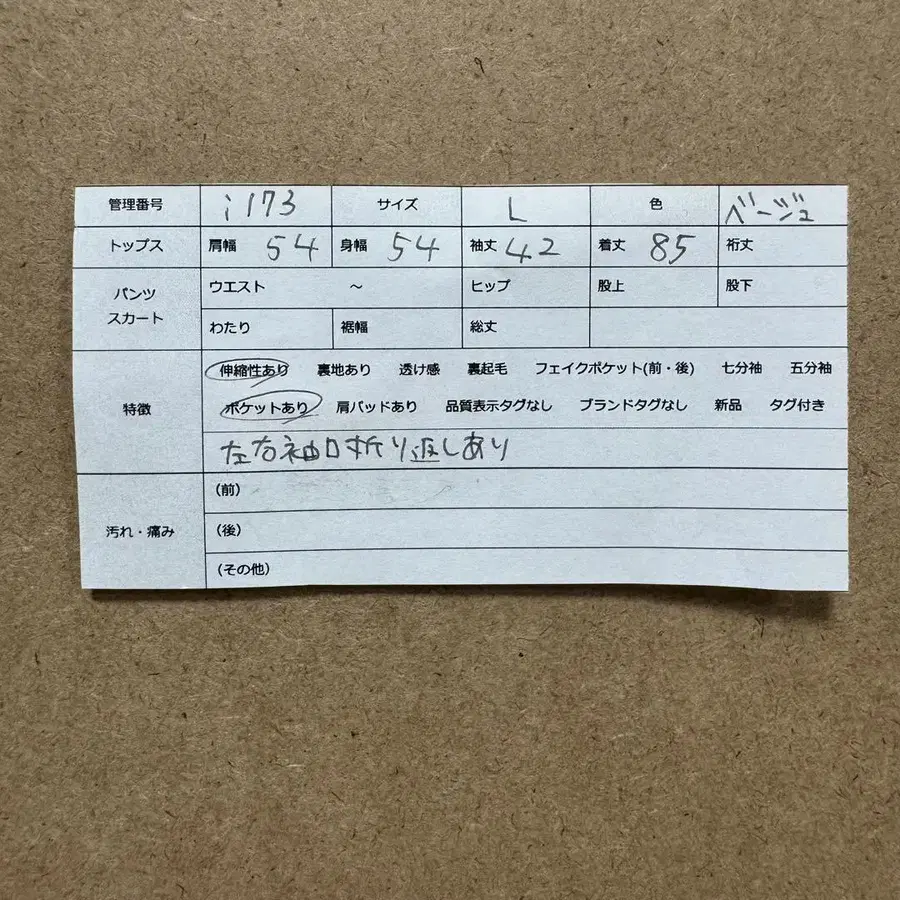 管理番号 i173 サイズ L 色 ベージュ
トップス 肩幅 54 身幅 54 袖丈 42 着丈 85 裄丈
パンツ スカート ウエスト ～ ヒップ 股上 股下
わたり 裾幅 総丈
特徴 伸縮性あり 裏地あり 透け感 裏起毛 フェイクポケット(前・後) 七分袖 五分袖
ポケットあり 肩パッドあり 品質表示タグなし ブランドタグなし 新品 タグ付き
左右袖口折り返しあり
汚れ・痛み (前)
(後)
(その他)